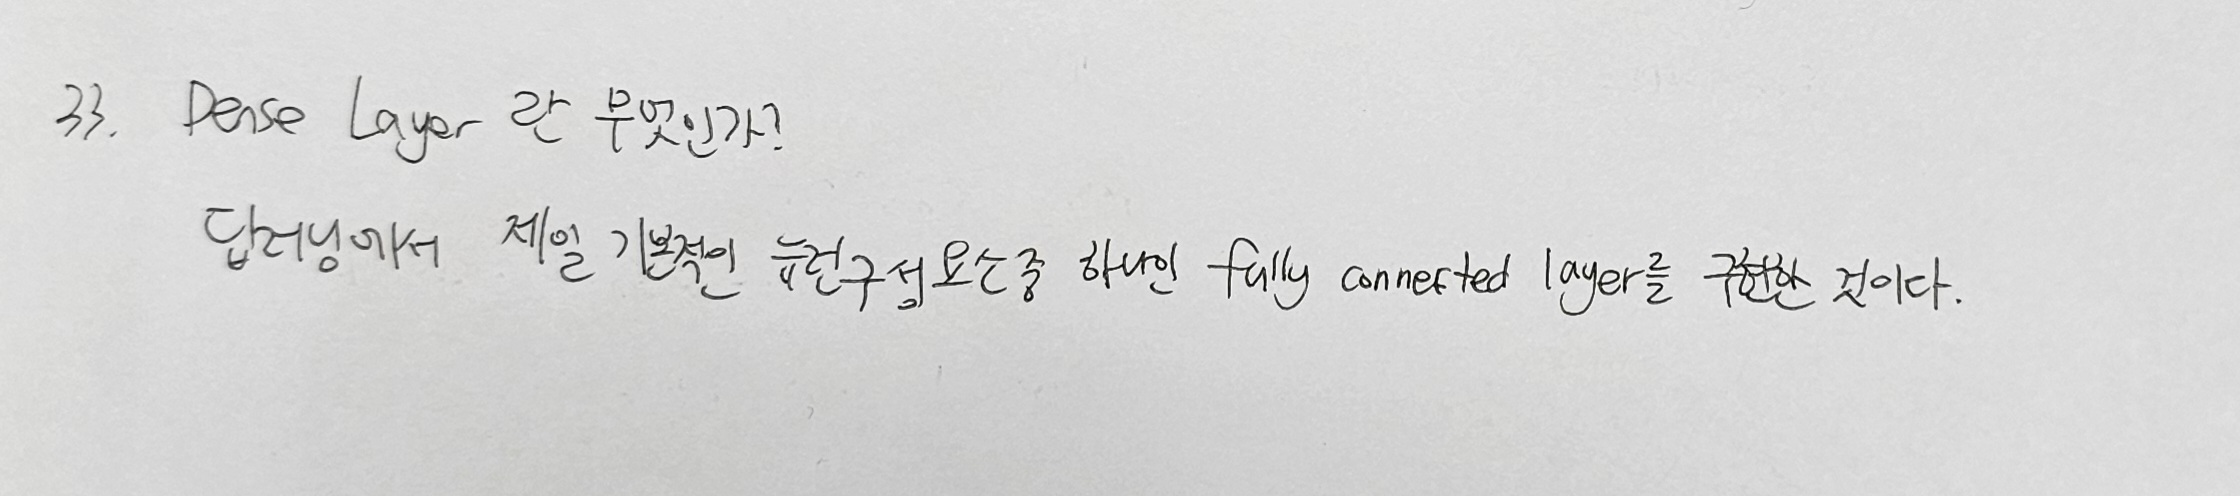 33. Dense Layer 란 무엇인가?
딥러닝에서 제일 기본적인 뉴런구성요소중 하나인 fully connected layer를 구현한 것이다.